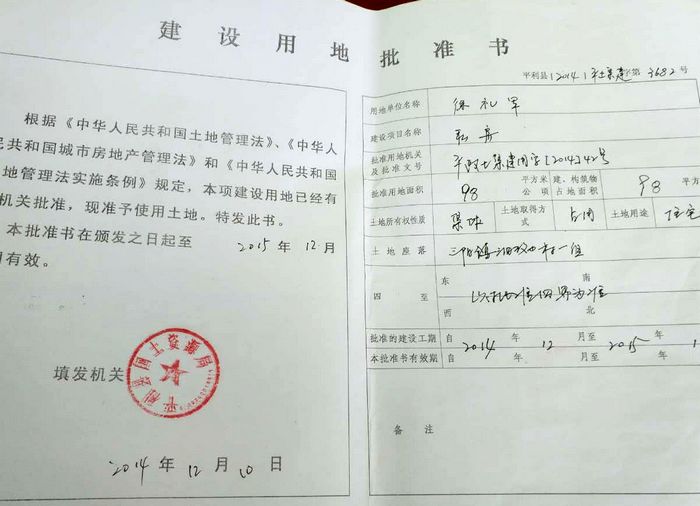 建设用地批准书
根据《中华人民共和国土地管理法》、《中华人
民共和国城市房地产管理法》和《中华人民共和国
地管理法实施条例》规定，本项建设用地已经有
机关批准，现准予使用土地。特发此书。
本批准书在颁发之日起至 2015 年 12 月
有效。
平利县国土资源局
填发机关
2014 年 12 月 10 日
平利县（2014）平土集建字第 3682 号
用地单位名称 徐礼军
建设项目名称
批准用地机关及批准文号 平政土集建用字[2014]42号
批准用地面积 98 平方米 公顷 建、构筑物占地面积 98 平方
土地所有权性质 集体 土地取得方式 占用 土地用途 住宅
土地座落 三阳镇 村一组
四至 东 南
以实地 四界为准
西 北
批准的建设工期 自 年 月至 年
2014 12 2015 1
本批准书有效期 自 年 月至 年
备注